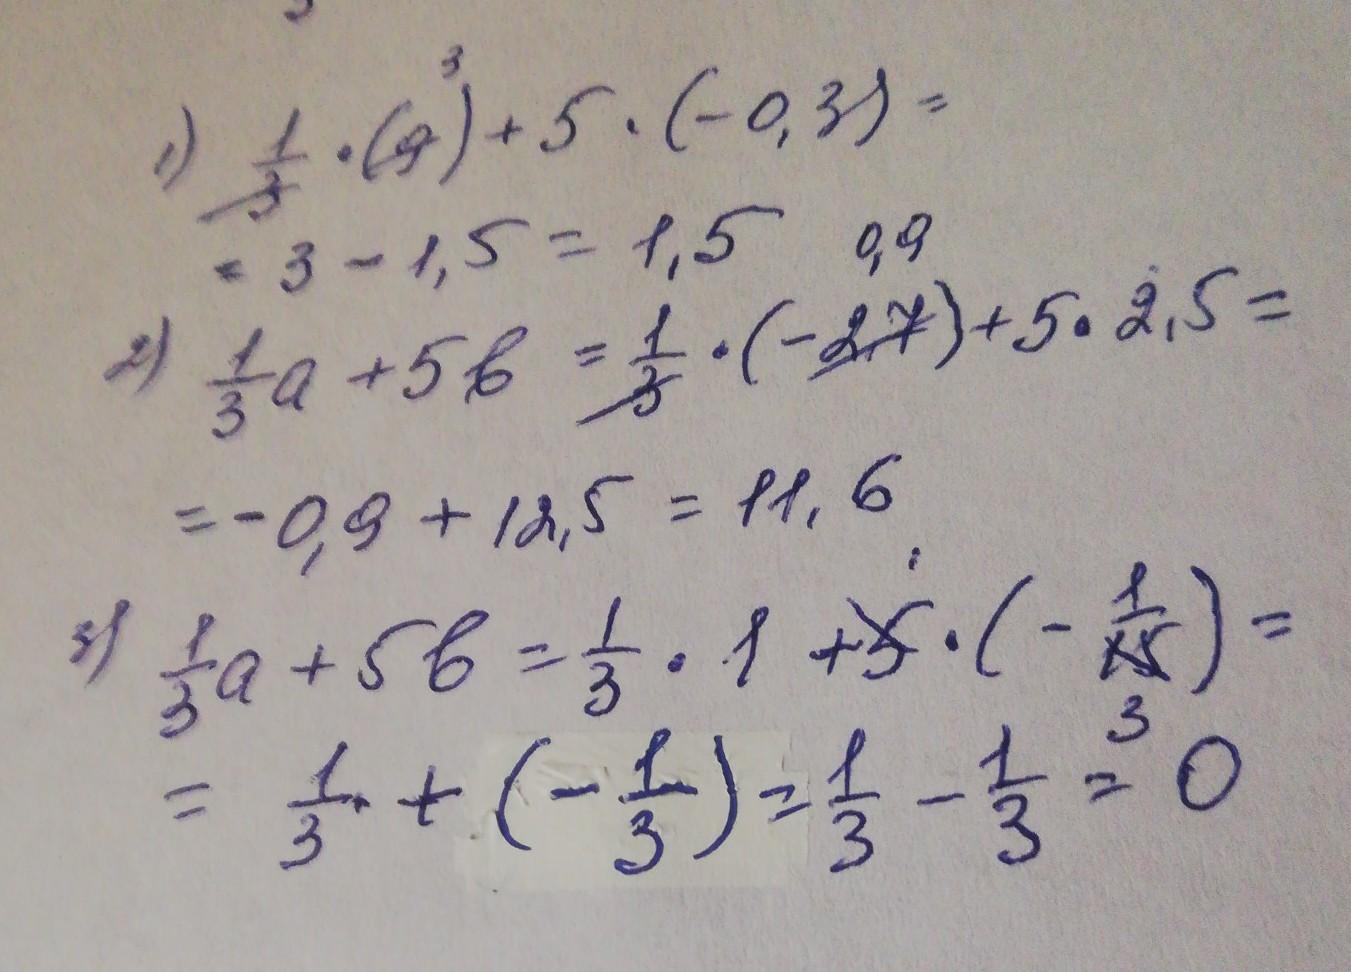 1) 1/3 · (9) 3 + 5 · (-0,3) =
= 3 - 1,5 = 1,5
2) 1/3 a + 5b = 1/3 · (-2,7) 0,9 + 5 · 2,5 =
= -0,9 + 12,5 = 11,6
3) 1/3 a + 5b = 1/3 · 1 + 5 · (- 1/15) 3 =
= 1/3 + (- 1/3) = 1/3 - 1/3 = 0